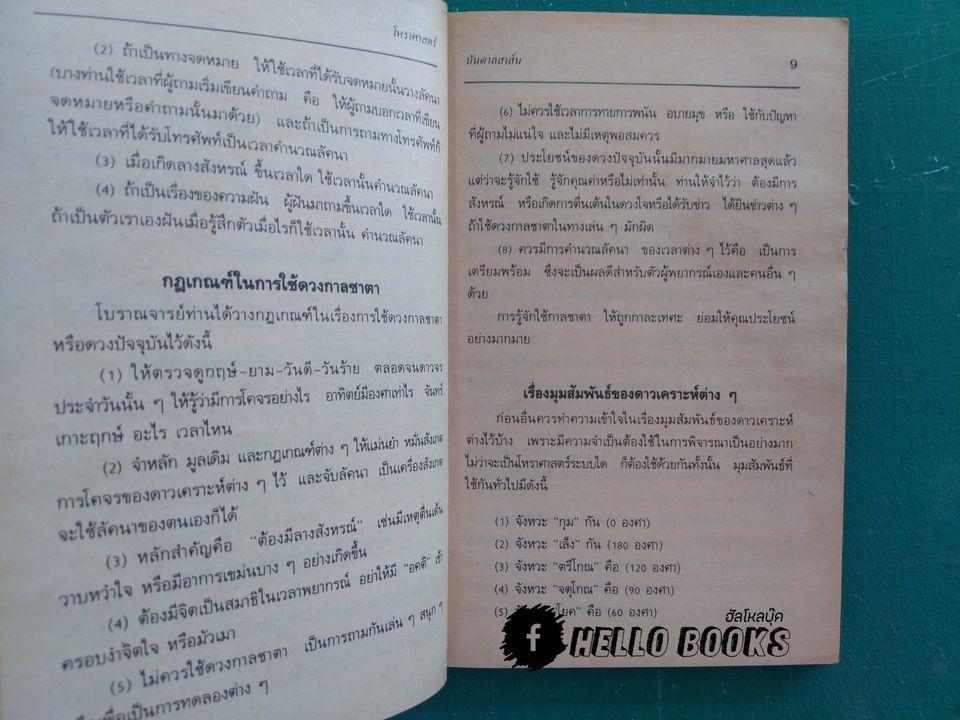 โหราศาสตร์
(2) ถ้าเป็นทางจดหมาย ให้ใช้เวลาที่ได้รับจดหมายนั้นวางลัคนา
(บางท่านใช้เวลาที่ผู้ถามเริ่มเขียนคำถาม คือ ให้ผู้ถามบอกเวลาที่เขียน
จดหมายหรือคำถามนั้นมาด้วย) และถ้าเป็นการถามทางโทรศัพท์ก็
ให้ใช้เวลาที่ได้รับโทรศัพท์เป็นเวลาคำนวณลัคนา
(3) เมื่อเกิดลางสังหรณ์ ขึ้นเวลาใด ใช้เวลานั้นคำนวณลัคนา
(4) ถ้าเป็นเรื่องของความฝัน ผู้ฝันมาถามขึ้นเวลาใด ใช้เวลานั้น
ถ้าเป็นตัวเราเองฝันเมื่อรู้สึกตัวเมื่อไรก็ใช้เวลานั้น คำนวณลัคนา
กฎเกณฑ์ในการใช้ดวงกาลชาตา
โบราณจารย์ท่านได้วางกฎเกณฑ์ในเรื่องการใช้ดวงกาลชาตา
หรือดวงปัจจุบันไว้ดังนี้
(1) ให้ตรวจดูฤกษ์-ยาม-วันดี-วันร้าย ตลอดจนดาวจร
ประจำวันนั้น ๆ ให้รู้ว่ามีการโคจรอย่างไร อาทิตย์มีองศาเท่าไร จันทร์
เกาะฤกษ์ อะไร เวลาไหน
(2) จำหลัก มูลเดิม และกฎเกณฑ์ต่าง ๆ ให้แม่นยำ หมั่นสังเกต
การโคจรของดาวเคราะห์ต่าง ๆ ไว้ และจับลัคนา เป็นเครื่องสังเกต
จะใช้ลัคนาของตนเองก็ได้
(3) หลักสำคัญคือ "ต้องมีลางสังหรณ์" เช่นมีเหตุตื่นเต้น
วาบหวำใจ หรือมีอาการเขม่นบาง ๆ อย่างเกิดขึ้น
(4) ต้องมีจิตเป็นสมาธิในเวลาพยากรณ์ อย่าให้มี "อคติ" เข้า
ครอบงำจิตใจ หรือมัวเมา
(5) ไม่ควรใช้ดวงกาลชาตา เป็นการถามกันเล่น ๆ สนุก ๆ
เพื่อเป็นการทดลองต่าง ๆ
บันดาลสาส์น 9
(6) ไม่ควรใช้เวลาการทายการพนัน อบายมุข หรือ ใช้กับปัญหา
ที่ผู้ถามไม่แน่ใจ และไม่มีเหตุพอสมควร
(7) ประโยชน์ของดวงปัจจุบันนั้นมีมากมายมหาศาลสุดแล้ว
แต่ว่าจะรู้จักใช้ รู้จักคุณค่าหรือไม่เท่านั้น ท่านให้จำไว้ว่า ต้องมีการ
สังหรณ์ หรือเกิดการตื่นเต้นในดวงใจหรือได้รับข่าว ได้ยินข่าวต่าง ๆ
ถ้าใช้ดวงกาลชาตาในทางเล่น ๆ มักผิด
(8) ควรมีการคำนวณลัคนา ของเวลาต่าง ๆ ไว้คือ เป็นการ
เตรียมพร้อม ซึ่งจะเป็นผลดีสำหรับตัวผู้พยากรณ์เองและคนอื่น ๆ
ด้วย
การรู้จักใช้กาลชาตา ให้ถูกกาละเทศะ ย่อมให้คุณประโยชน์
อย่างมากมาย
เรื่องมุมสัมพันธ์ของดาวเคราะห์ต่าง ๆ
ก่อนอื่นควรทำความเข้าใจในเรื่องมุมสัมพันธ์ของดาวเคราะห์
ต่างไว้บ้าง เพราะมีความจำเป็นต้องใช้ในการพิจารณาเป็นอย่างมาก
ไม่ว่าจะเป็นโหราศาสตร์ระบบใด ก็ต้องใช้ด้วยกันทั้งนั้น มุมสัมพันธ์ที่
ใช้กันทั่วไปมีดังนี้
(1) จังหวะ "กุม" กัน (0 องศา)
(2) จังหวะ "เล็ง" กัน (180 องศา)
(3) จังหวะ "ตรีโกณ" คือ (120 องศา)
(4) จังหวะ "จตุโกณ" คือ (90 องศา)
(5) โยค" คือ (60 องศา)
ฮัลโหลบุ๊ค
f HELLO BOOKS